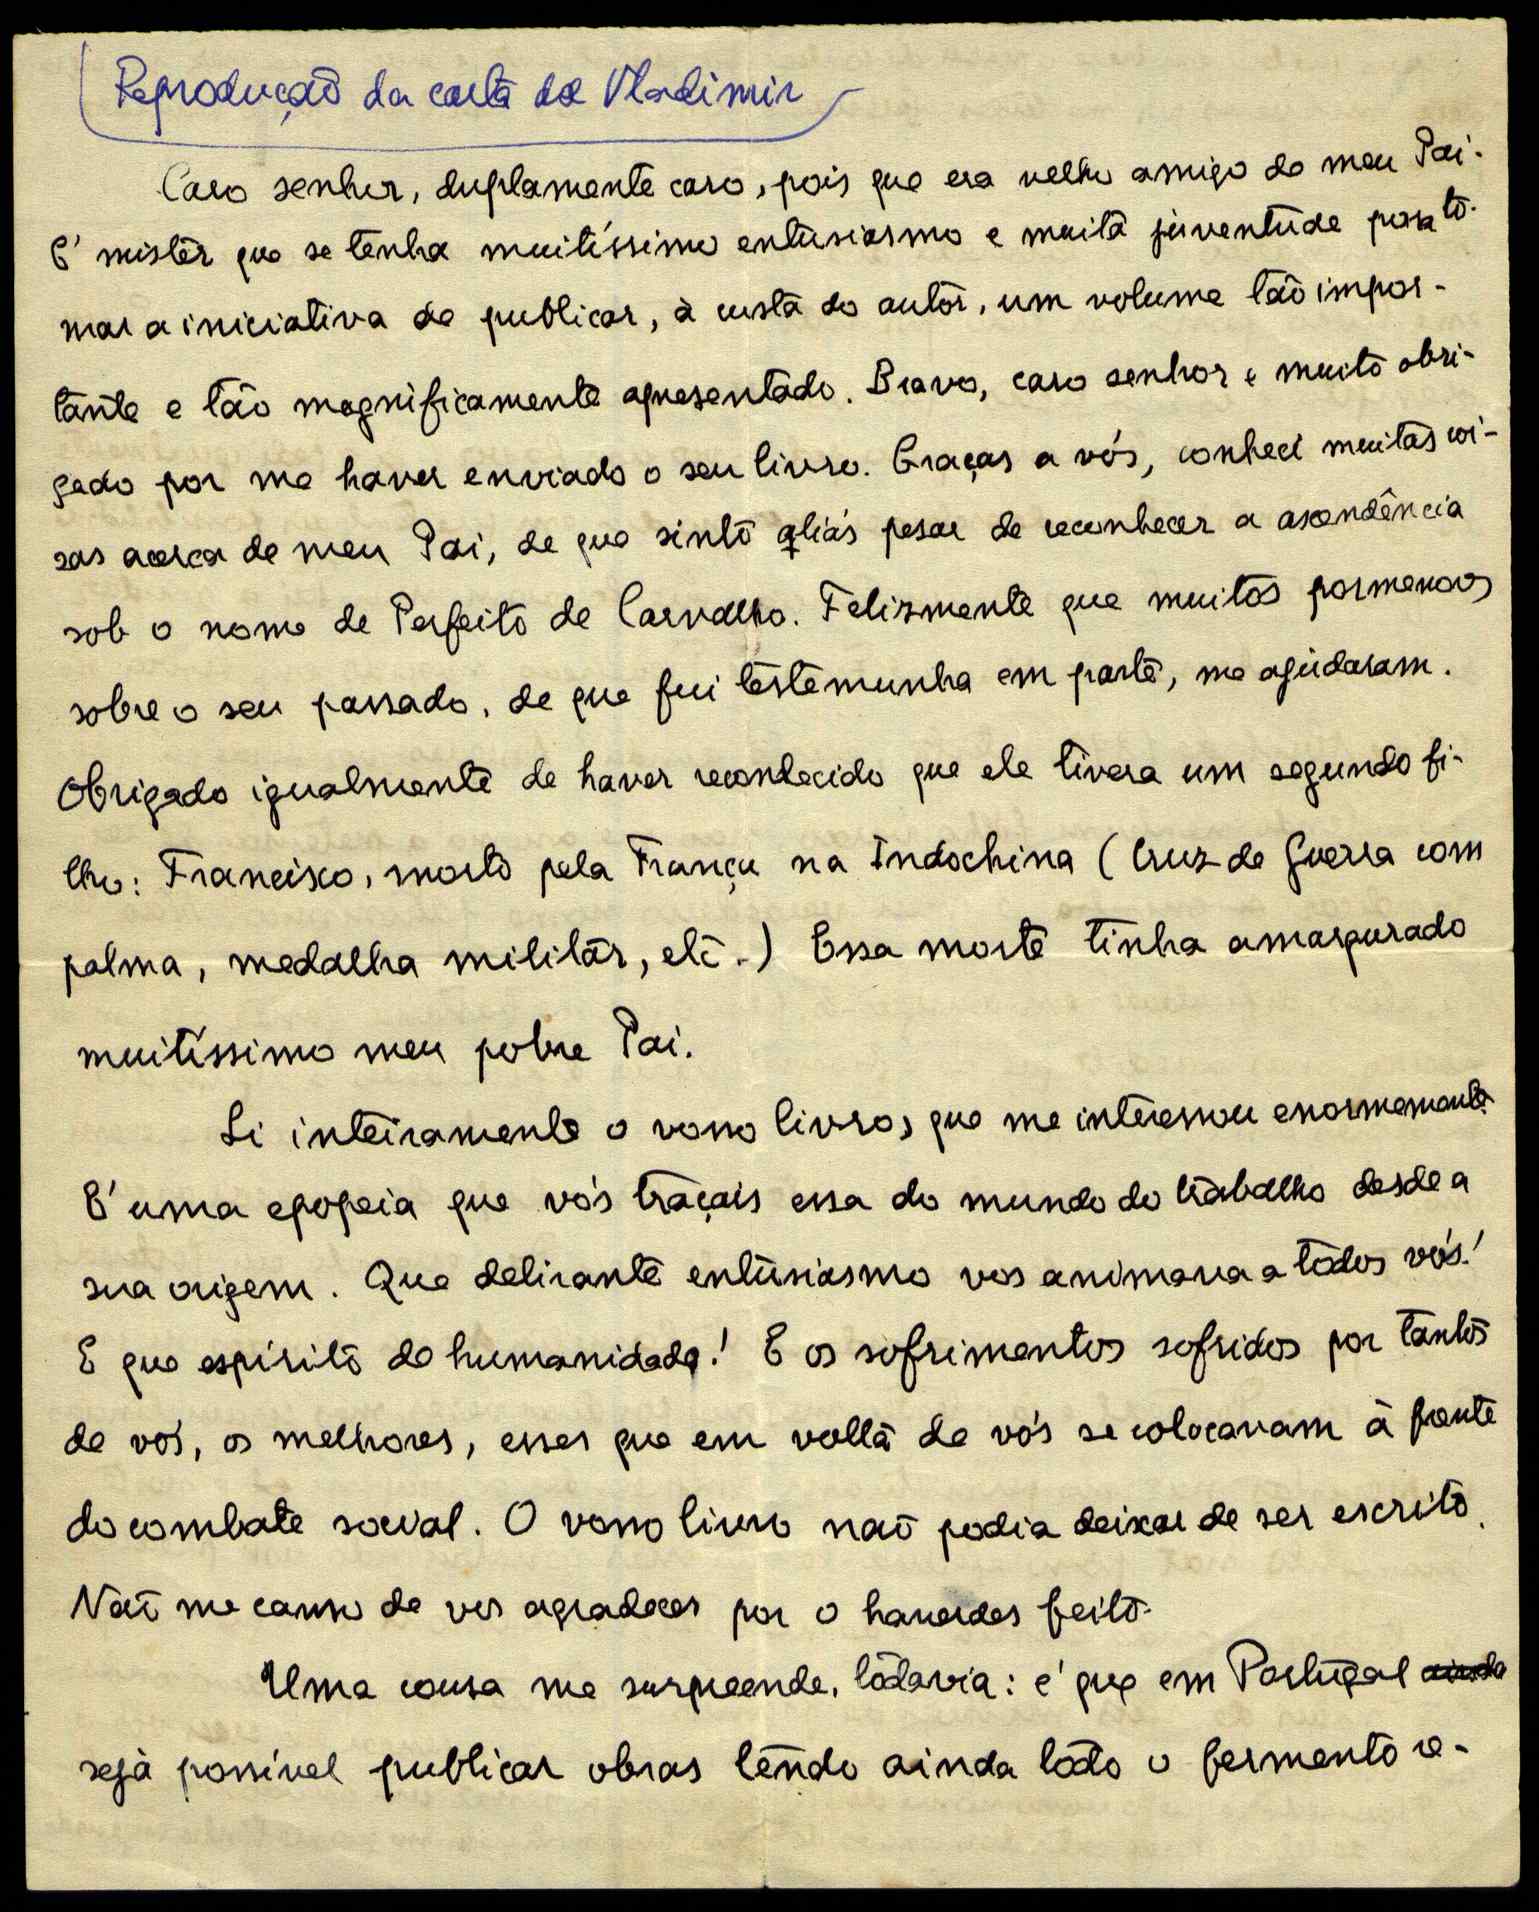 Reprodução da carta de Vladimir
Caro senhor, duplamente caro, pois que era velho amigo de meu Pai.
É mister que se tenha muitíssimo entusiasmo e muita juventude para to-
mar a iniciativa de publicar, à custa do autor, um volume tão impor-
tante e tão magnificamente apresentado. Bravo, caro senhor e muito obri-
gado por me haver enviado o seu livro. Graças a vós, conheci muitas coi-
sas acerca de meu Pai, de que sinto aliás pesar de reconhecer a ascendência
sob o nome de Perfeito de Carvalho. Felizmente que muitos pormenores
sobre o seu passado, de que fui testemunha em parte, me ajudaram.
Obrigado igualmente de haver reconhecido que ele tivera um segundo fi-
lho: Francisco, morto pela França na Indochina (Cruz de Guerra com
palma, medalha militar, etc.) Essa morte tinha amargurado
muitíssimo meu pobre Pai.
Li inteiramente o vosso livro, que me interessou enormemente.
É uma epopeia que vós traçais essa do mundo do trabalho desde a
sua origem. Que delirante entusiasmo vos animava a todos vós!
E que espírito de humanidade! E os sofrimentos sofridos por tantos
de vós, os melhores, esses que em volta de vós se colocavam à frente
do combate social. O vosso livro não podia deixar de ser escrito.
Não me canso de vos agradecer por o haverdes feito.
Uma cousa me surpreende, todavia: é que em Portugal ainda
seja possível publicar obras tendo ainda todo o fermento re-